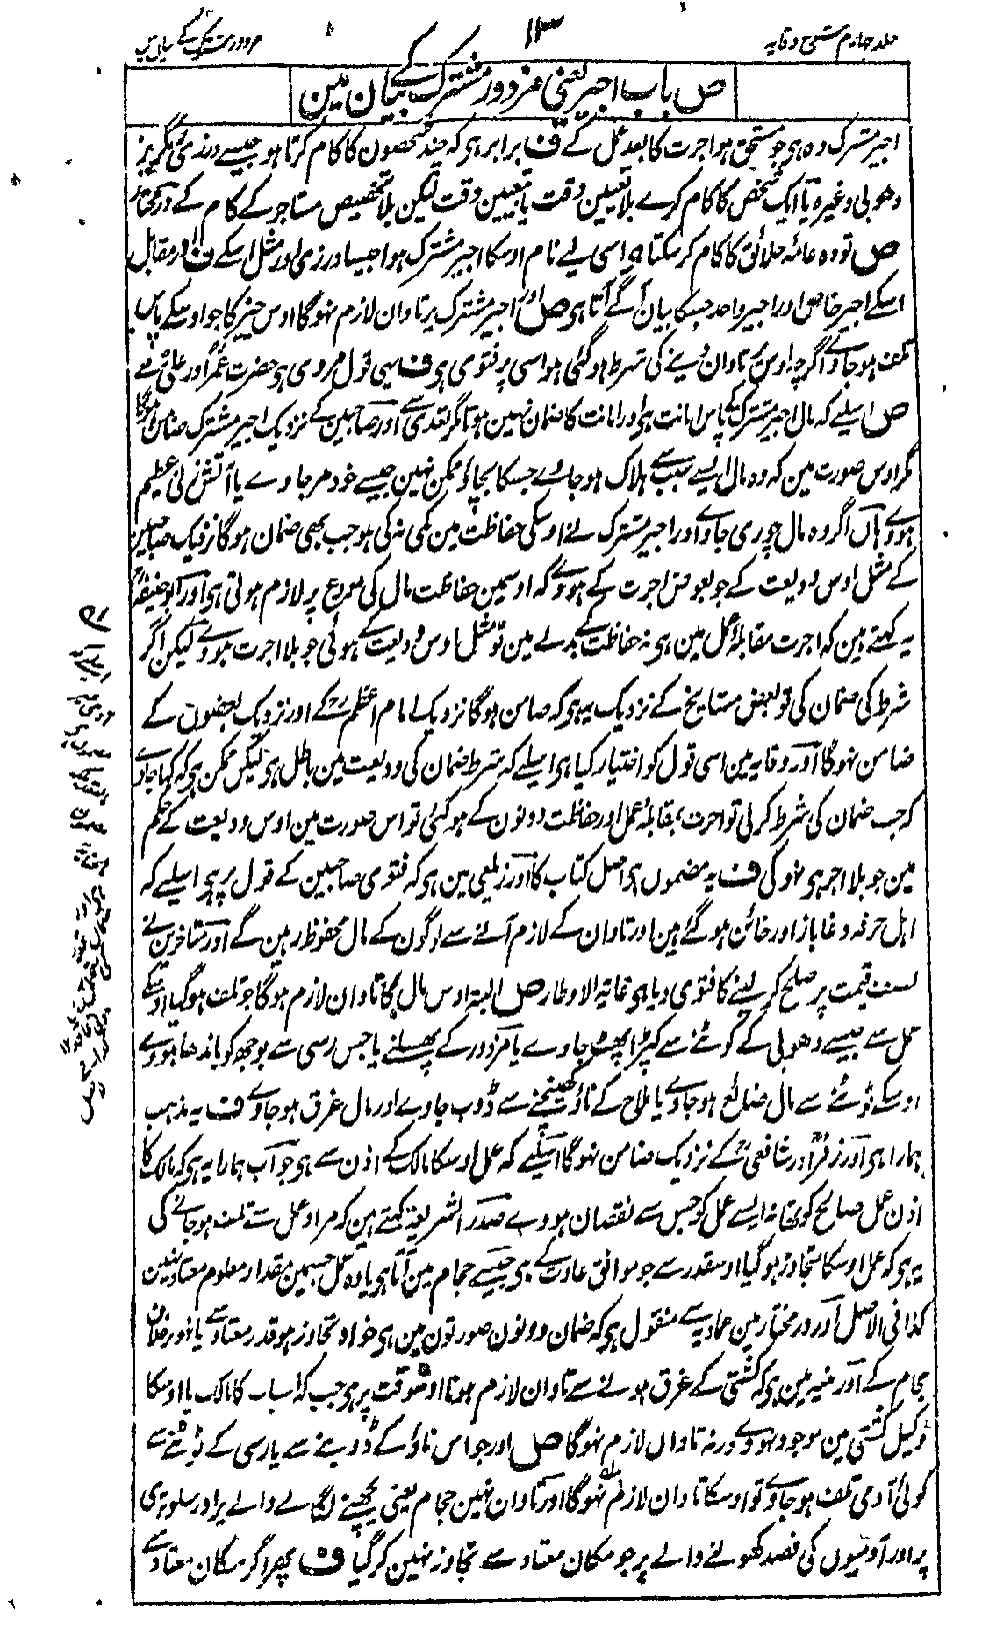 جلد چہارم شرح وقایہ
۱۳
مزدور مشترک کے بیان میں
ص باب اجیر یعنی مزدور مشترک کے بیان مین
اجیر مشترک وہ ہی جو مستحق ہو اجرت کا بعد عمل کے ف برابر ہی کہ چند شخصون کا کام کرتا ہو جیسے درزی رنگریز
دھوبی وغیرہ یا ایک شخص کا کام کرے بلا تعیین وقت یا بتعیین وقت لیکن بلا تخصیص مستاجر کے کام کے درمختار
ص تو وہ عامہ خلائق کا کام کر سکتا ہی اسی لیے نام اوسکا اجیر مشترک ہوا جیسا درزی اور مثل اسکے ف اور مقابل
اسکے اجیر خاص اور اجیر واحد جسکا بیان آگے آتا ہی ص اور اجیر مشترک پر تاوان لازم نہوگا اوس چیز کا جو اوسکے پاس
تلف ہو جاوے اگرچہ اوس پر تاوان دینے کی شرط ہو گئی ہو اسی پر فتوی ہی ف یہی قول مروی ہی حضرت عمر اور علی سے
ص اسلیے کہ مال اجیر مشترک کے پاس امانت ہی اور امانت کا ضمان نہین ہوتا مگر تعدی سے اور صاحبین کے نزدیک اجیر مشترک ضامن ہوگا
مگر اوس صورت مین کہ وہ مال ایسے سبب سے ہلاک ہو جاوے جسکا بچاؤ ممکن نہین جیسے خود مر جاوے یا آتش زنی عظیم
ہووے ہان اگر وہ مال چوری جاوے اور اجیر مشترک نے اوسکی حفاظت مین کمی نہ کی ہو جب بھی ضمان ہوگا نزدیک صاحبین
کے مثل اوس ودیعت کے جو بعوض اجرت کے ہووے کہ اوسمین حفاظت مال کی مودع پر لازم ہوتی ہی اور ابو حنیفہ
یہ کہتے ہین کہ اجرت مقابلہ عمل مین ہی نہ حفاظت کے بدلے مین تو مثل اوس ودیعت کے ہوئی جو بلا اجرت ہووے لیکن اگر
شرط کی ضمان کی تو بعض مشایخ کے نزدیک یہ ہی کہ ضامن ہوگا نزدیک امام اعظم کے اور نزدیک بعضون کے
ضامن نہوگا اور وقایہ مین اسی قول کو اختیار کیا ہی اسلیے کہ شرط ضمان کی ودیعت مین باطل ہی لیکن ممکن ہی کہ کہا جاوے
کہ جب ضمان کی شرط کر لی تو اجرت بمقابلہ عمل اور حفاظت دونون کے ہو گئی تو اس صورت مین اوس ودیعت کے حکم
مین جو بلا اجر ہی نہوگی ف یہ مضمون ہی اصل کتاب کا اور زیلعی مین ہی کہ فتوی صاحبین کے قول پر ہی اسلیے کہ
اہل حرفہ دغا باز اور خائن ہو گئے ہین اور تاوان کے لازم آنے سے لوگون کے مال محفوظ رہین گے اور متاخرین نے
نصف قیمت پر صلح کر لینے کا فتوی دیا ہی غایۃ الاوطار ص البتہ اوس مال کا تاوان لازم ہوگا جو تلف ہو گیا اوسکے
عمل سے جیسے دھوبی کے کوٹنے سے کپڑا پھٹ جاوے یا مزدور کے پھسلنے یا جس رسی سے بوجھ کو باندھا ہووے
اوسکے ٹوٹنے سے مال ضائع ہو جاوے یا ملاح کے ناؤ کھینچنے سے ڈوب جاوے اور مال غرق ہو جاوے ف یہ مذہب
ہمارا ہی اور زفر اور شافعی کے نزدیک ضامن نہوگا اسلیے کہ عمل اوسکا مالک کے اذن سے ہی جواب ہمارا یہ ہی کہ مالک کا
اذن عمل صالح کو تھا نہ ایسے عمل کو جس سے نقصان ہووے صدر الشریعۃ کہتے ہین کہ مراد عمل سے تلف ہو جانے کی
یہ ہی کہ عمل اوسکا متجاوز ہو گیا اوسقدر سے جو موافق عادت کے ہی جیسے حجام مین آتا ہی یا وہ عمل جسمین مقدار معلوم معتاد نہین
کذا فی الاصل اور در مختار مین عمادیہ سے منقول ہی کہ ضمان دونون صورتون مین ہی خواہ متجاوز ہو قدر معتاد سے یا نہو بخلاف
حجام کے اور منیہ مین ہی کہ کشتی کے غرق ہونے سے تاوان لازم ہونا اوسوقت پر ہی جب کہ اسباب کا مالک یا اوسکا
وکیل کشتی مین موجود نہووے ورنہ تاوان لازم نہوگا ص اور جو اس ناؤ کے ڈوبنے سے یا رسی کے ٹوٹنے سے
کوئی آدمی تلف ہو جاوے تو اوسکا تاوان لازم نہوگا اور تاوان نہین حجام یعنی پچھنے لگانے والے پر اور سلوتری
پر اور آدمیون کی فصد کھولنے والے پر جو مکان معتاد سے تجاوز نہین کر گیا ف پھر اگر مکان معتاد سے